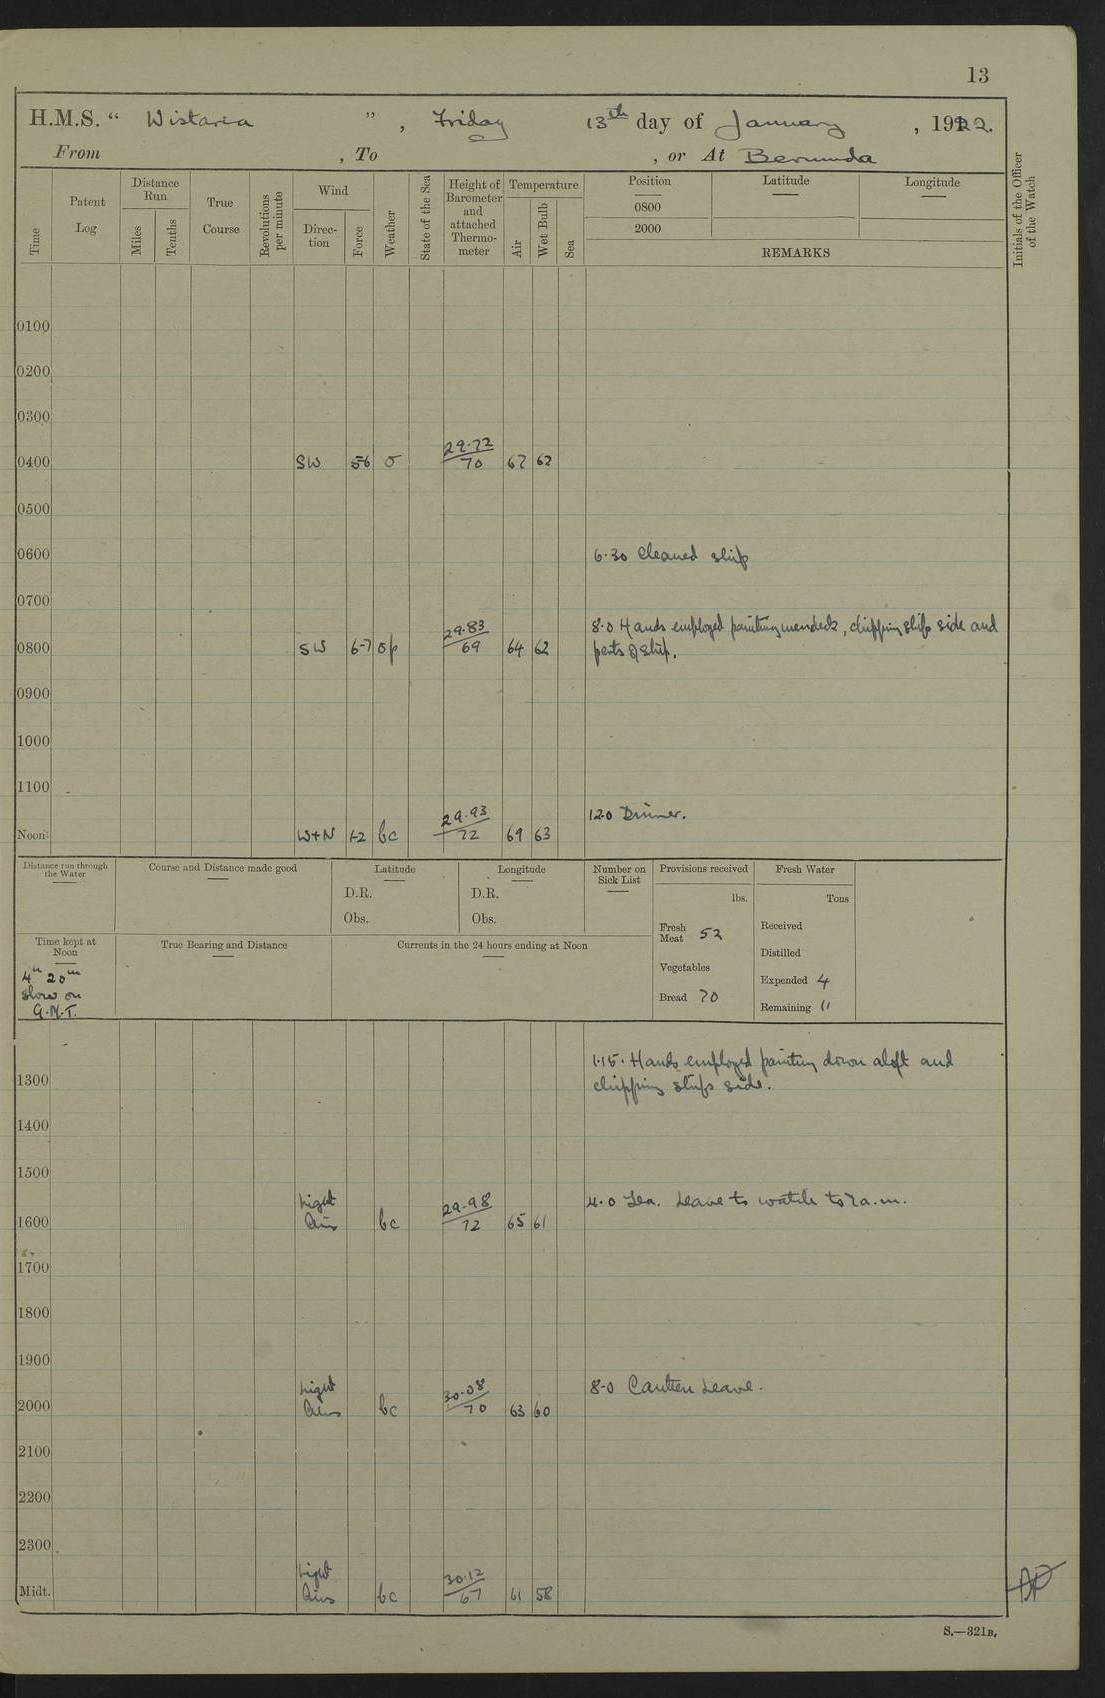 13
H.M.S. “ Wistaria ” , Friday 13th day of January , 1922.
From , To , or At Bermuda
Time
Patent Log
Distance Run
Miles
Tenths
True Course
Revolutions per minute
Wind
Direction
Force
Weather
State of the Sea
Height of Barometer and attached Thermometer
Temperature
Air
Wet Bulb
Sea
Position
0800
2000
Latitude
Longitude
REMARKS
Initials of the Officer of the Watch
0100
0200
0300
0400 SW 5-6 o 29.72/70 67 62
0500
0600 6.30 Cleaned ship
0700
8.0 Hands employed painting messdeck, chipping ships side and
0800 SW 6-7 op 29.83/69 64 62 parts of ship.
0900
1000
1100
12.0 Dinner.
Noon W+N 1-2 bc 29.93/72 69 63
Distance run through the Water
Course and Distance made good
Latitude
D.R.
Obs.
Longitude
D.R.
Obs.
Number on Sick List
Provisions received
lbs.
Fresh Meat 52
Vegetables
Bread 70
Fresh Water
Tons
Received
Distilled
Expended 4
Remaining 11
Time kept at Noon
4h 20m
slow on
G.M.T.
True Bearing and Distance
Currents in the 24 hours ending at Noon
1.15. Hands employed painting down aloft and
1300 chipping ships side.
1400
1500
1600 Light Airs bc 29.98/72 65 61 4.0 Tea. Leave to watch to 7 a.m.
1700
1800
1900
2000 Light Airs bc 30.08/70 63 60 8.0 Canteen Leave.
2100
2200
2300
Midt. Light Airs bc 30.12/67 61 58
S.—321B.